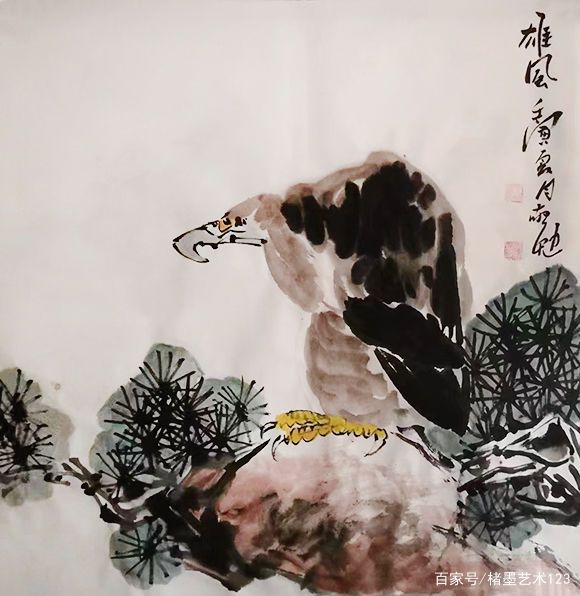 雄風 壬寅夏月
百家号/楮墨艺术123